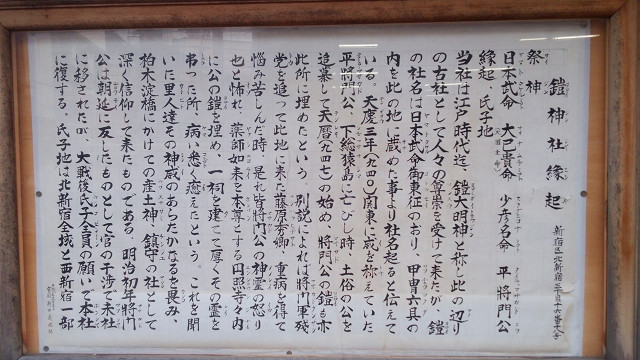 鎧神社縁起 新宿区北新宿三丁目十六番十八号
祭神
日本武命 大己貴命 少彦名命 平將門公
(大国主命)
縁起、氏子地
当社は江戸時代迄、鎧大明神と称し此の辺り
の古社として人々の尊崇を受けて来たが、鎧
の社名は日本武命御東征のおり、甲冑六具の
内を此の地に蔵めた事より社名起ると伝えて
いる。天慶三年(九四〇)関東に威を称えていた
平將門公、下総猿島に亡びし時、土俗の公を
追慕して天暦(九四七)の始め、將門公の鎧も亦
此所に埋めたという。別説によれば將門軍残
党を追って此地に来た藤原秀郷、重病を得て
悩み苦しんだ時、是れ皆將門公の神霊の怒り
也と怖れ、薬師如来を本尊とする円照寺々内
に公の鎧を埋め、一祠を建てて厚くその霊を
弔った所、病い悉く癒えたという。これを聞
いた里人達その神威のあらたかなるを畏み、
柏木淀橋にかけての産土神、鎮守の社として
深く信仰して来たものである。明治初年將門
公は朝廷に反したものとして官の干渉で末社
に移されたが、大戦後氏子全員の願いで本社
に復する。氏子地は北新宿全域と西新宿一部